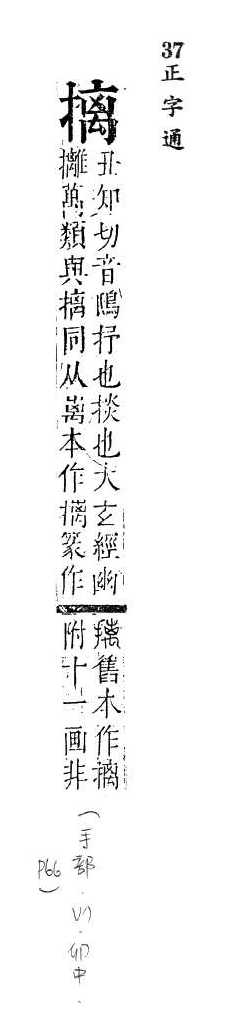 37正字通
摛
丑知切音鴟抒也掞也太玄經幽
攡萬類與摛同从离本作摛篆作
𢺍舊本作摛
附十一画非
(手部.
卯中.
P66)